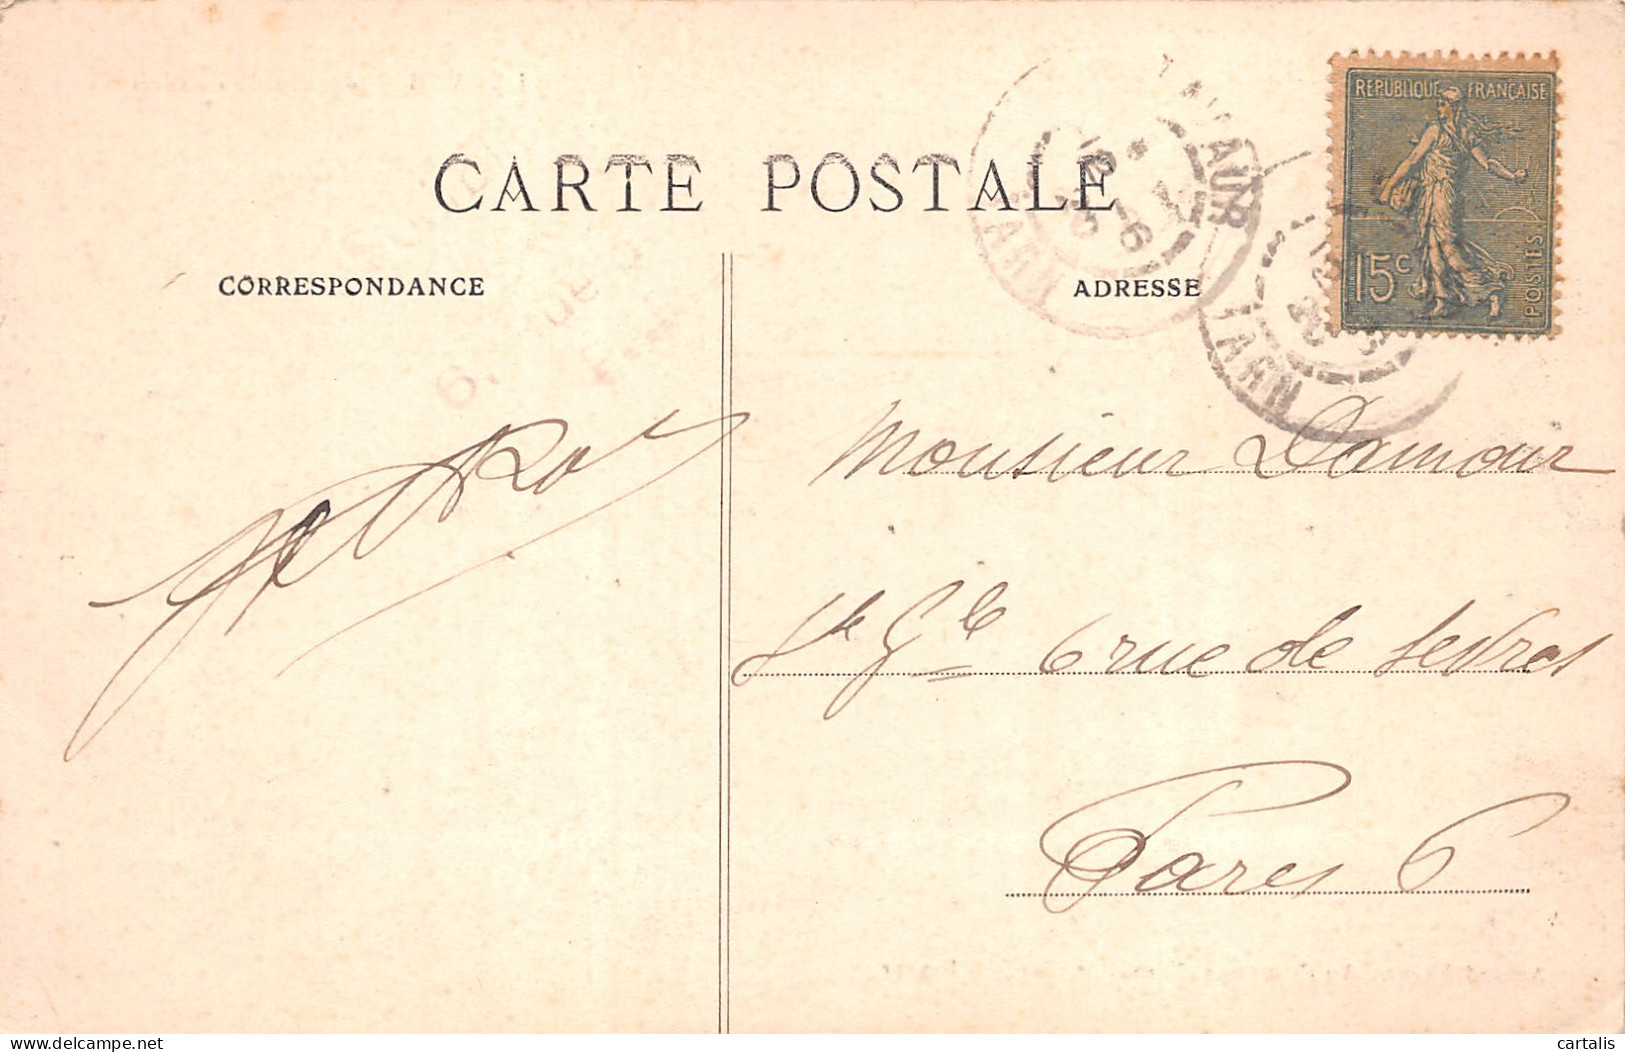 CARTE POSTALE
CORRESPONDANCE
ADRESSE
REPUBLIQUE FRANÇAISE
15 c
POSTES
LAVAUR
TARN
TARN
Monsieur Damour
6 rue de Sevres
Paris 6
cartalis
delcampe.net